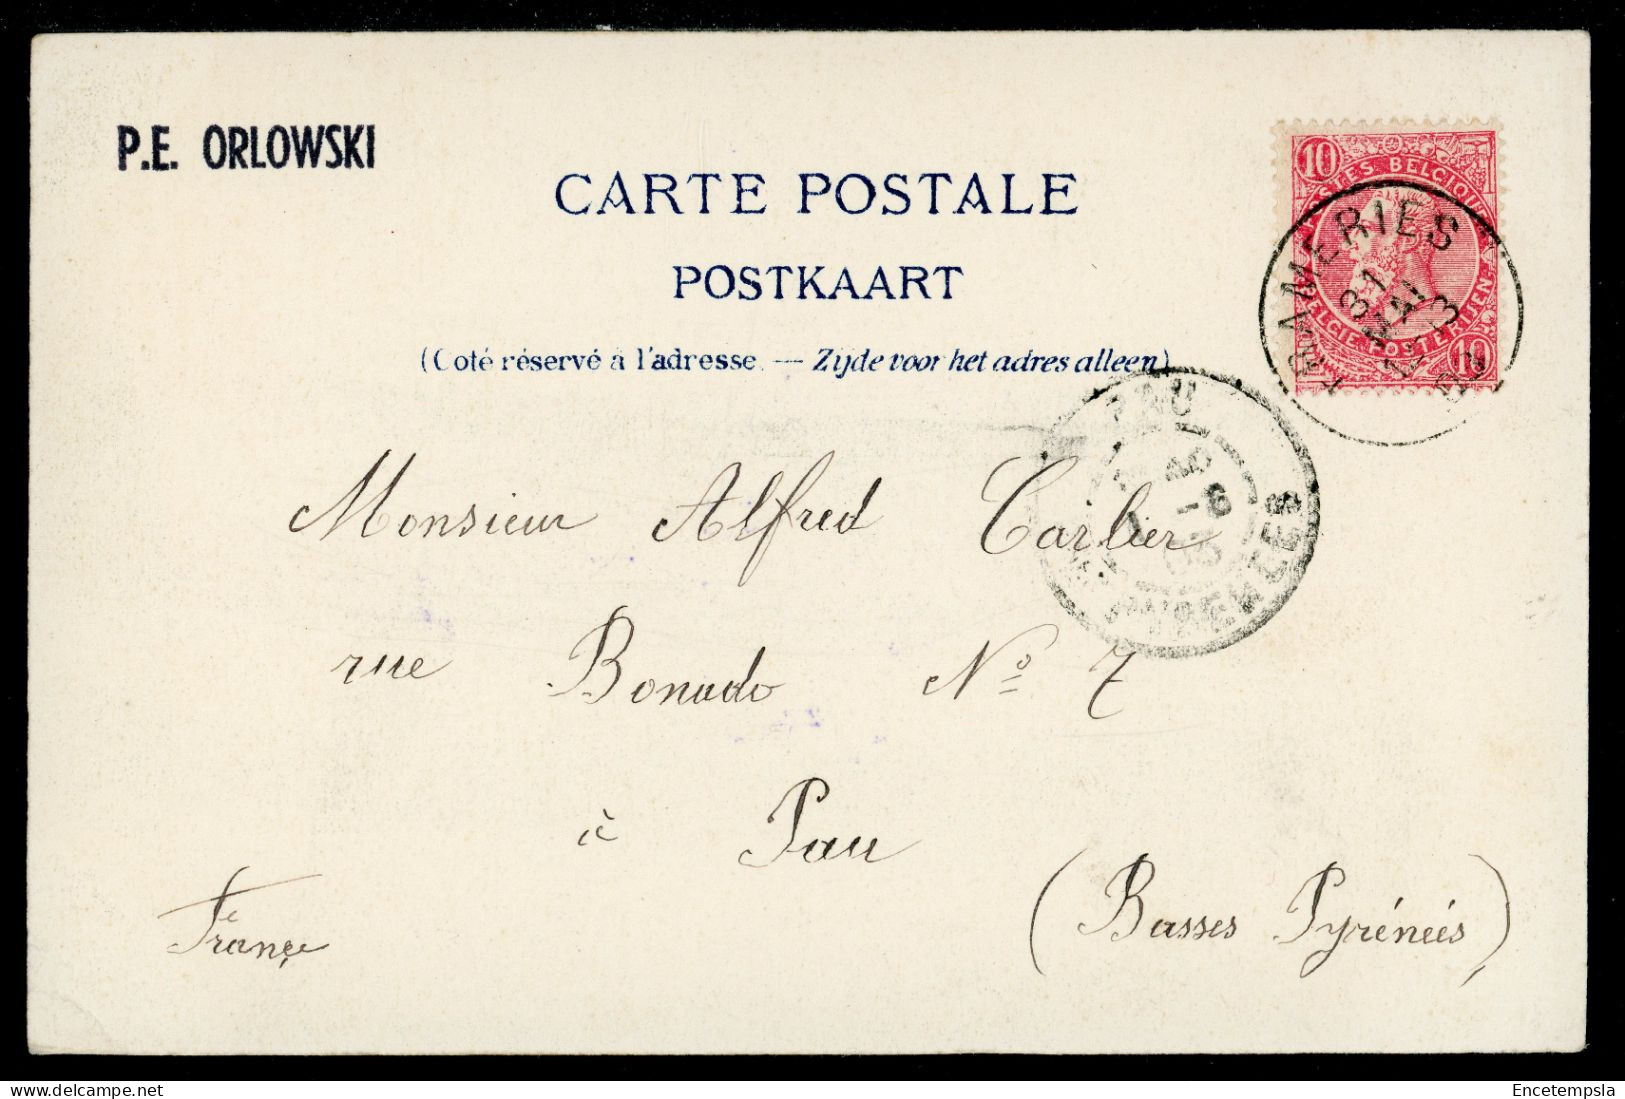 P.E. ORLOWSKI
CARTE POSTALE
POSTKAART
(Coté réservé à l'adresse. — Zijde voor het adres alleen)
10 POSTES BELGIQUE
BELGIE POSTERIJEN. 10
FRAMERIES
31
MAI
PAU
PYRENEES
Monsieur Alfred Carlier
rue Bonado Nº 7
à Pau
(Basses Pyrénées)
France
Encetempsla